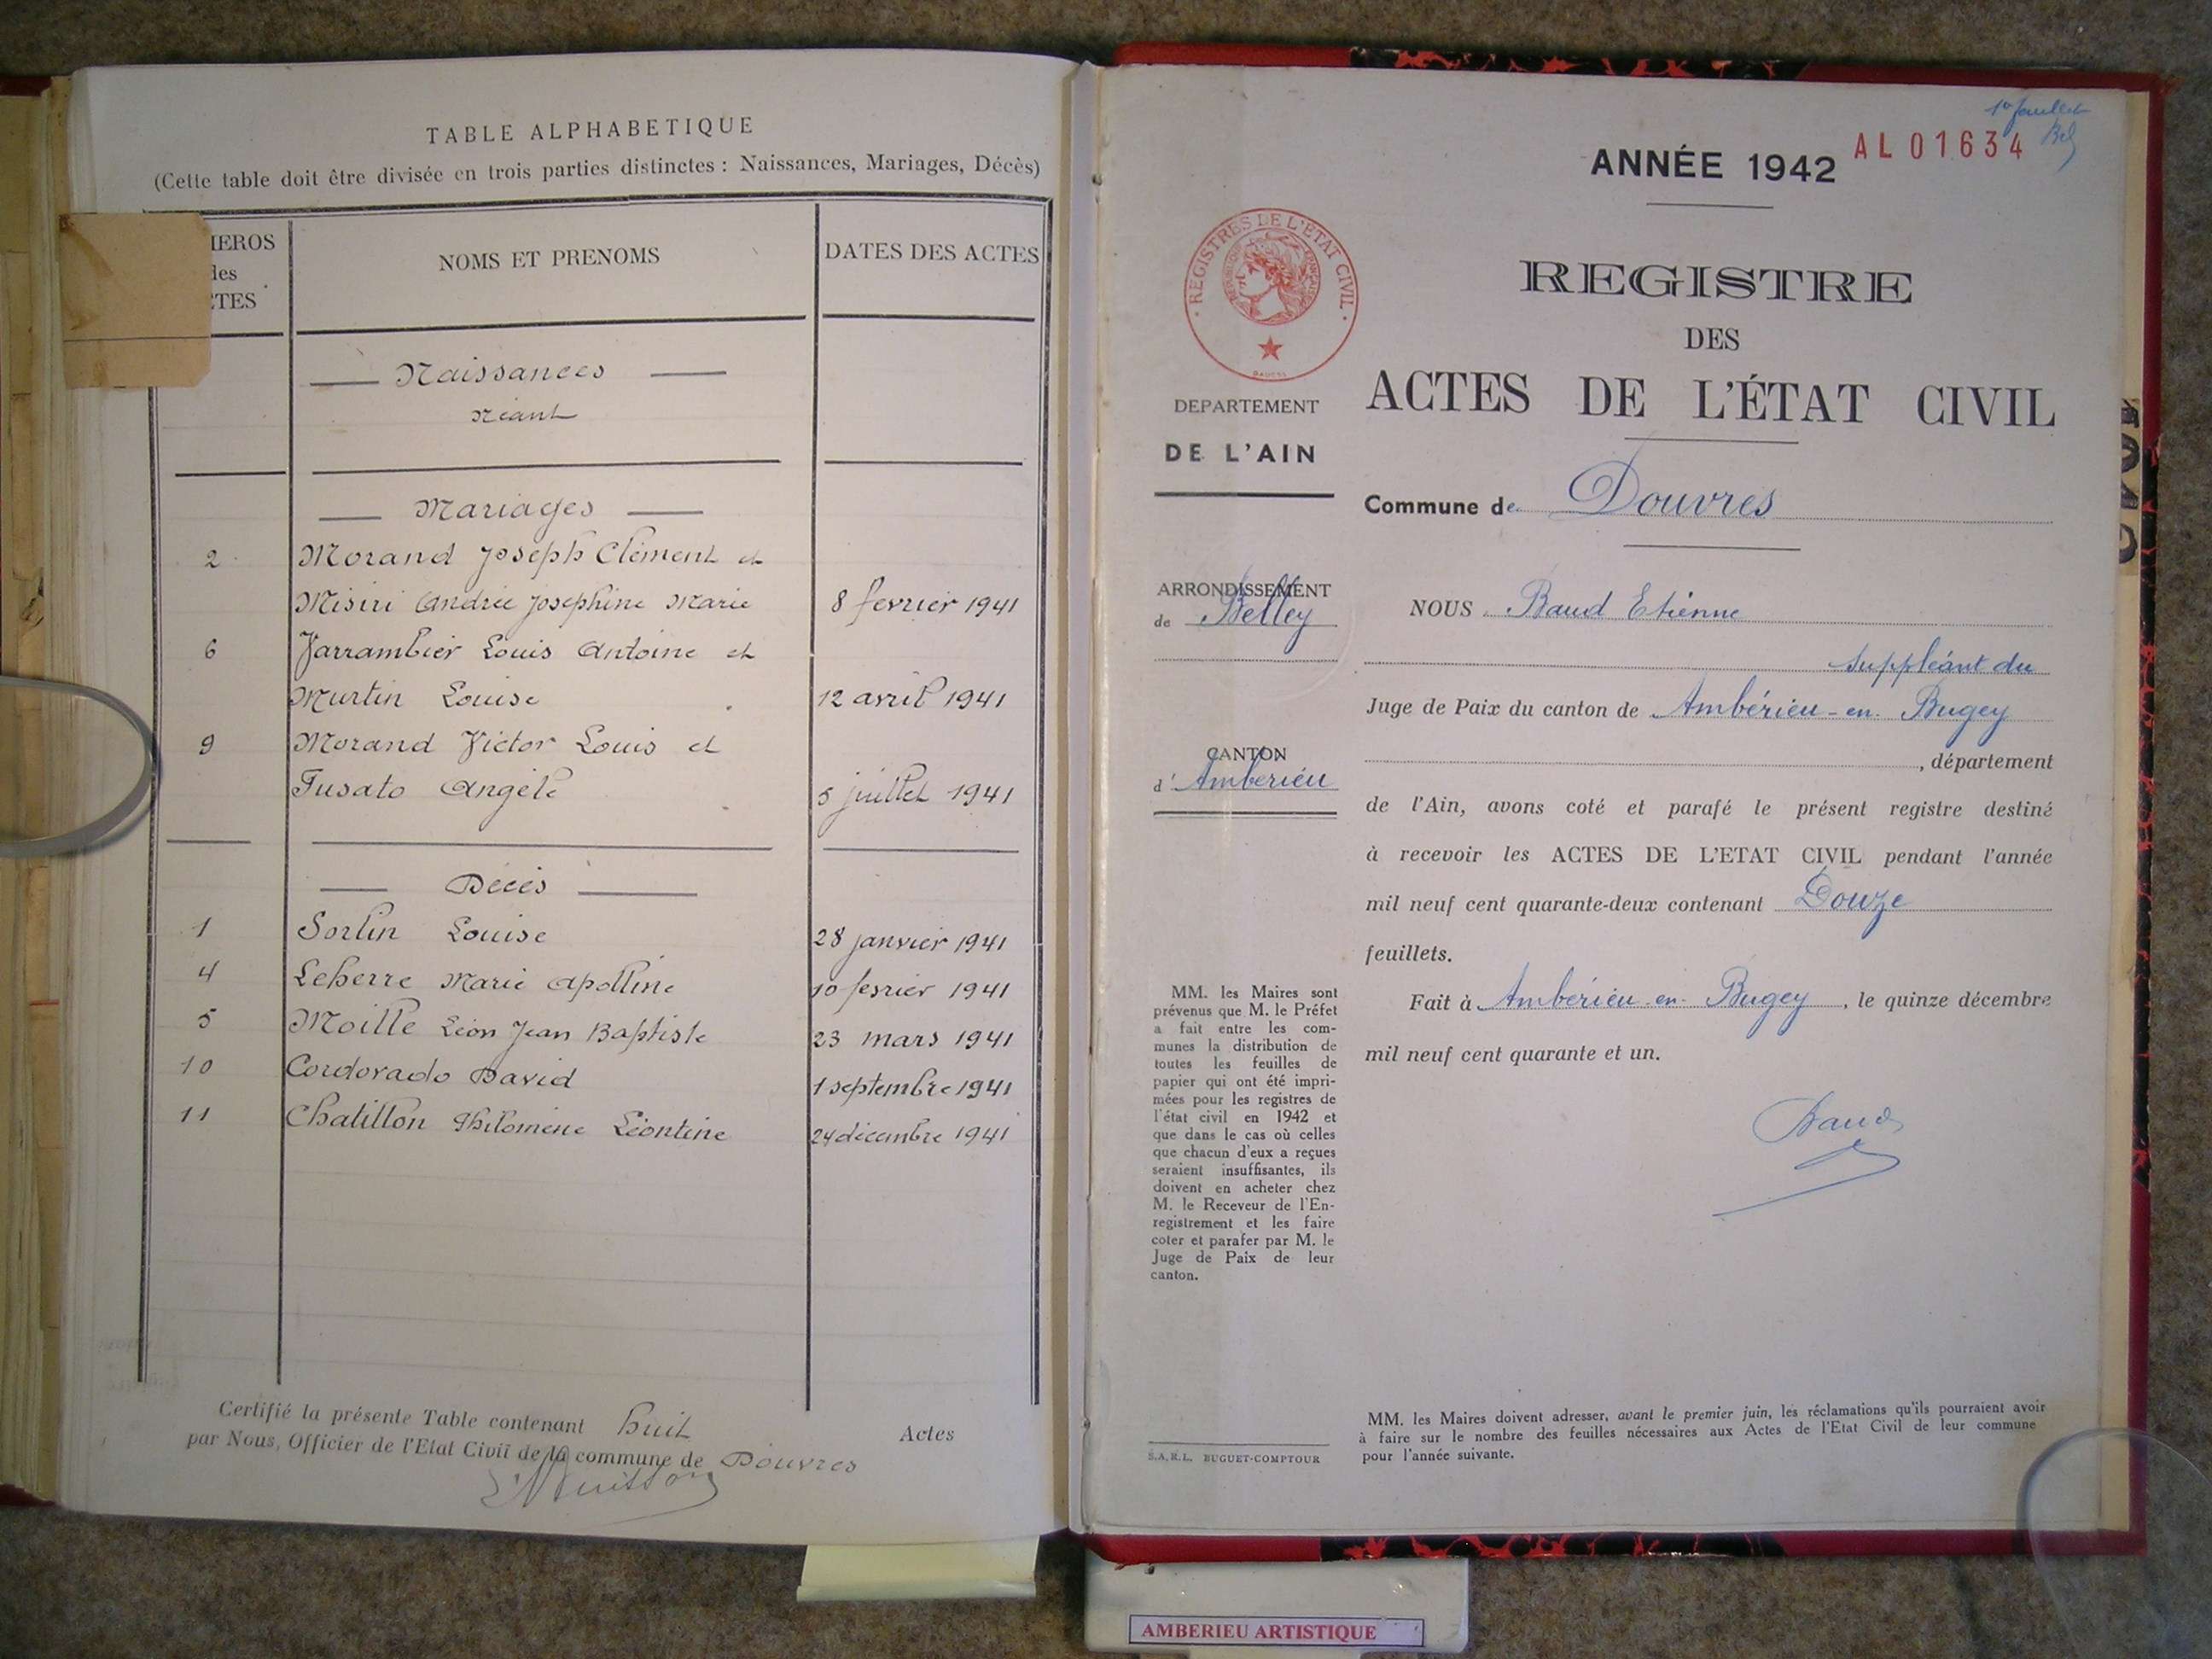 TABLE ALPHABETIQUE
(Cette table doit être divisée en trois parties distinctes : Naissances, Mariages, Décès)
MEROS
des
CTES
NOMS ET PRENOMS
DATES DES ACTES
Naissances
néant
Mariages
2 Morand Joseph Clément et
Misiri Andrée Joséphine Marie 8 fevrier 1941
6 Jarrambier Louis Antoine et
Murtin Louise 12 avril 1941
9 Morand Victor Louis et
Fusato Angèle 5 juillet 1941
Décès
1 Sorlin Louise 28 janvier 1941
4 Leherre Marie Apolline 10 fevrier 1941
5 Moille Léon Jean Baptiste 23 mars 1941
10 Cordovado David 1 septembre 1941
11 Chatillon Philomène Léontine 24 décembre 1941
Certifié la présente Table contenant huit Actes
par Nous, Officier de l'Etat Civil de la commune de Douvres
1er feuillet
ANNÉE 1942
AL 01634
REGISTRES DE L'ETAT CIVIL
REPUBLIQUE FRANÇAISE
REGISTRE
DES
ACTES DE L'ÉTAT CIVIL
DEPARTEMENT
DE L'AIN
Commune de Douvres
ARRONDISSEMENT
de Belley
CANTON
d' Ambérieu
NOUS Baud Etienne
suppléant du
Juge de Paix du canton de Ambérieu-en-Bugey
, département
de l'Ain, avons coté et parafé le présent registre destiné
à recevoir les ACTES DE L'ETAT CIVIL pendant l'année
mil neuf cent quarante-deux contenant Douze
feuillets.
Fait à Ambérieu-en-Bugey, le quinze décembre
mil neuf cent quarante et un.
Baud
MM. les Maires sont
prévenus que M. le Préfet
a fait entre les com-
munes la distribution de
toutes les feuilles de
papier qui ont été impri-
mées pour les registres de
l'état civil en 1942 et
que dans le cas où celles
que chacun d'eux a reçues
seraient insuffisantes, ils
doivent en acheter chez
M. le Receveur de l'En-
registrement et les faire
coter et parafer par M. le
Juge de Paix de leur
canton.
S.A.R.L. BUGUET-COMPTOUR
MM. les Maires doivent adresser, avant le premier juin, les réclamations qu'ils pourraient avoir
à faire sur le nombre des feuilles nécessaires aux Actes de l'Etat Civil de leur commune
pour l'année suivante.
AMBERIEU ARTISTIQUE